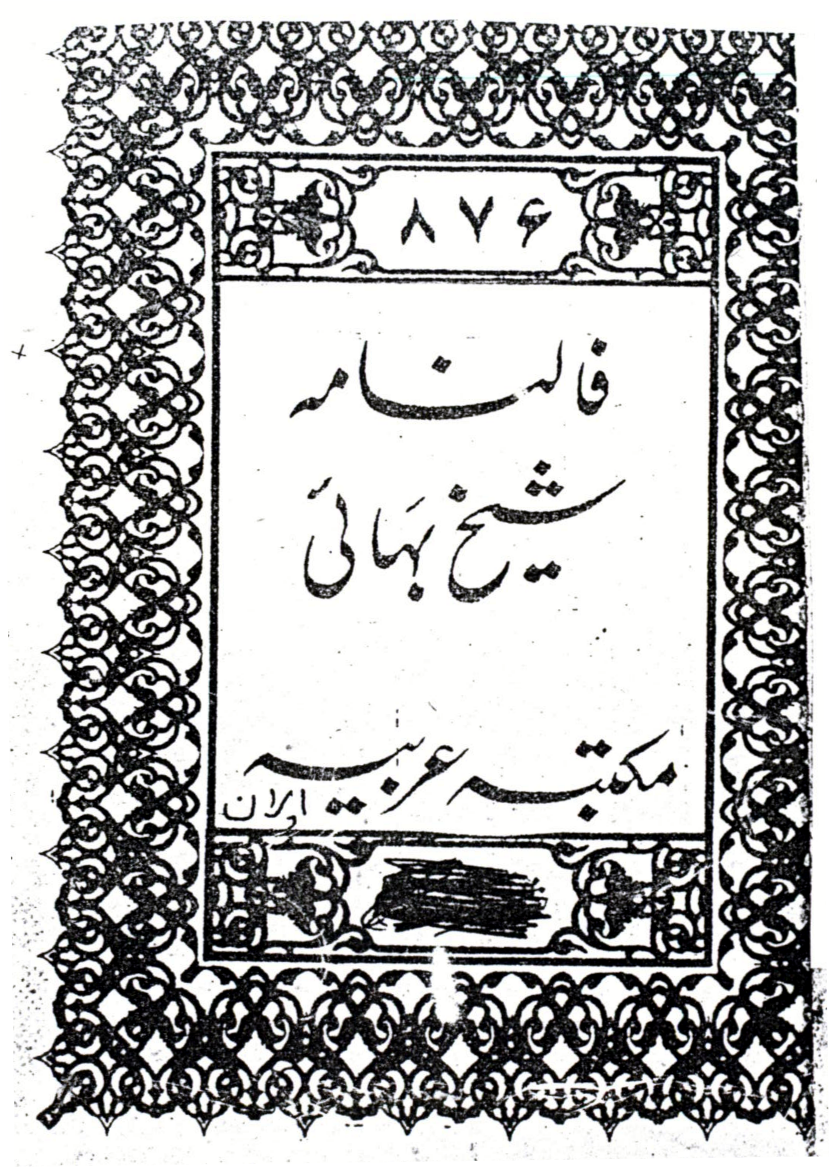 ۸۷۶
فالنامه
شیخ بهائی
مکتبه عربیه
ایران